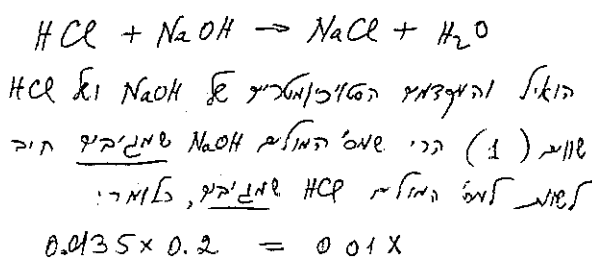 HCl + NaOH → NaCl + H₂O
הואיל והמקדמים הסטויכיומטריים של NaOH ושל HCl
שווים (1) הרי שמס' המולים NaOH שמגיבים חייב
לשוות למס' המולים HCl שמגיבים, כלומר:
0.0135 × 0.2 = 0.01X